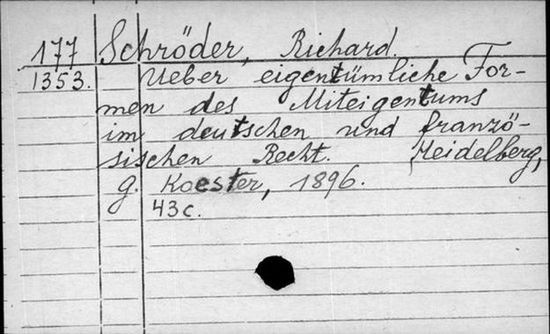 177 Schröder, Richard.
1353. Ueber eigentümliche For-
men des Miteigentums
im deutschen und franzö-
sischen Recht. Heidelberg,
G. Koester, 1896.
43 c.